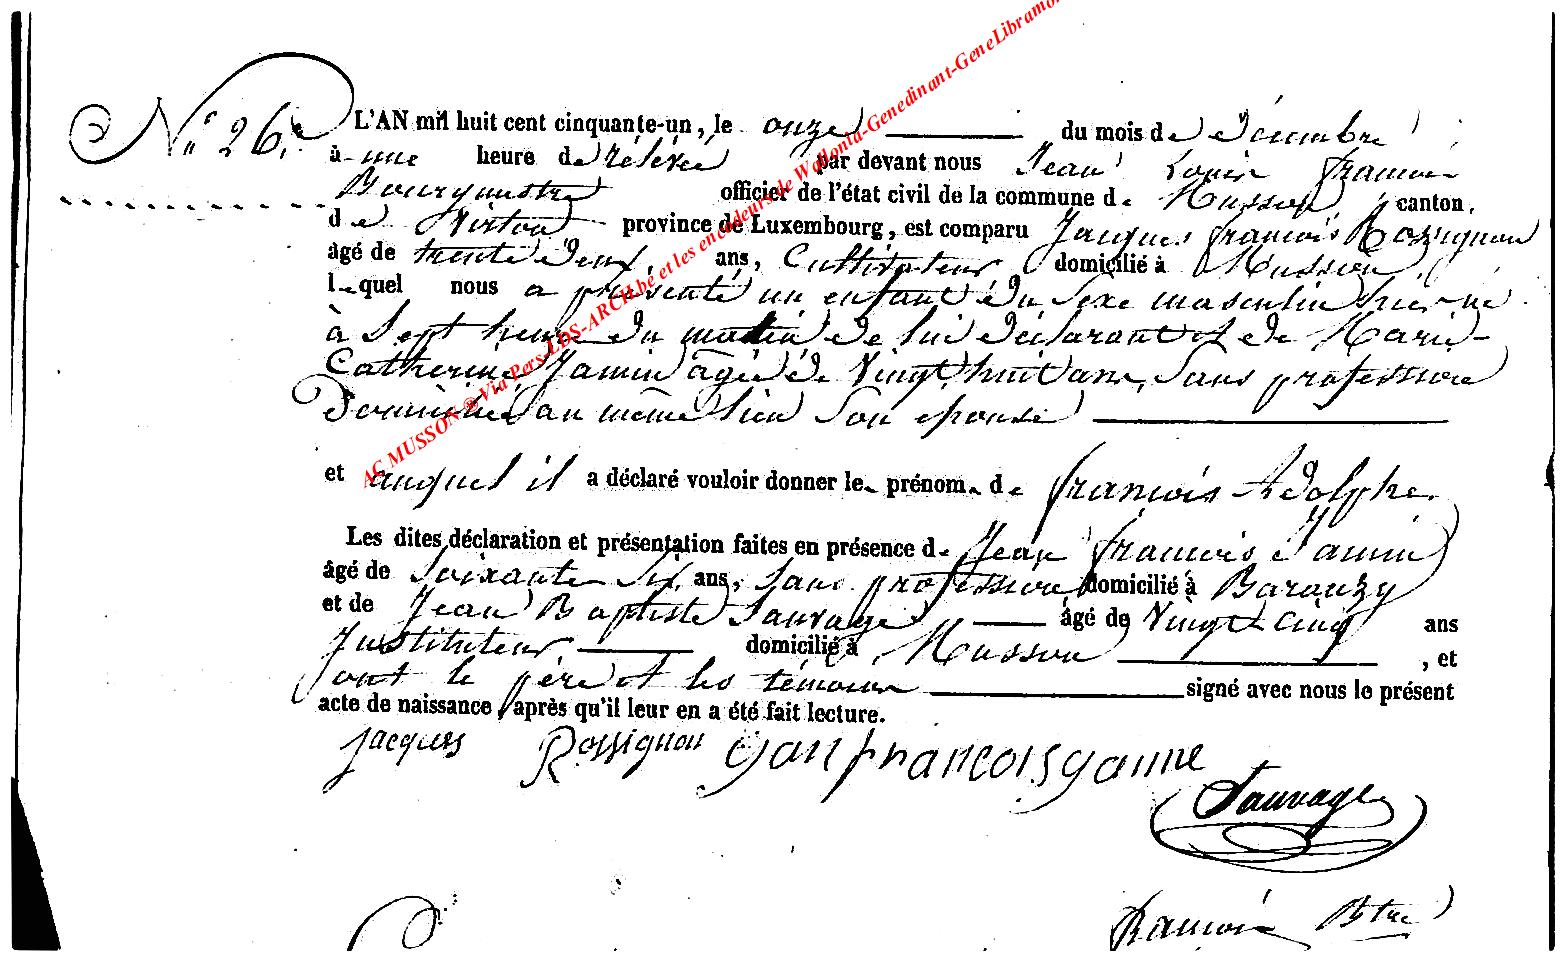 N° 26.
L'AN mil huit cent cinquante-un, le onze du mois de décembre
à une heure de rélévée par devant nous Jean Louis francois
Bourgmestre officier de l'état civil de la commune de Musson, canton
de Virton province de Luxembourg, est comparu Jacques francois Rossignon
âgé de trente deux ans, Cultivateur domicilié à Musson,
lequel nous a présenté un enfant du sexe masculin hier né
à Sept heure du matin de lui déclarant et de Marie
Catherine Jamin agée de Vingt huit ans, Sans profession
Domiciliée au même lieu Son épouse
et auquel il a déclaré vouloir donner le prénom de francois Adolphe
Les dites déclaration et présentation faites en présence de Jean francois Jamin
âgé de Soixante Six ans, Sans profession domicilié à Baranzy
et de Jean Baptiste Sauvage âgé de Vingt cinq ans
Instituteur domicilié à Musson , et
ont le père et les témoins signé avec nous le présent
acte de naissance, après qu'il leur en a été fait lecture.
jacques Rossignon
Sauvage
francois Btre
AC MUSSON ® Via Pers LDS-ARCH.be et les encodeurs de Wallonia-Genedinant-GeneLibramo